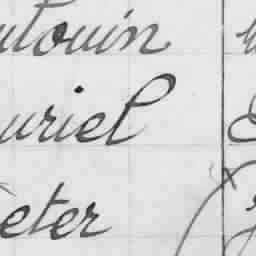 utouin
uriel
eter